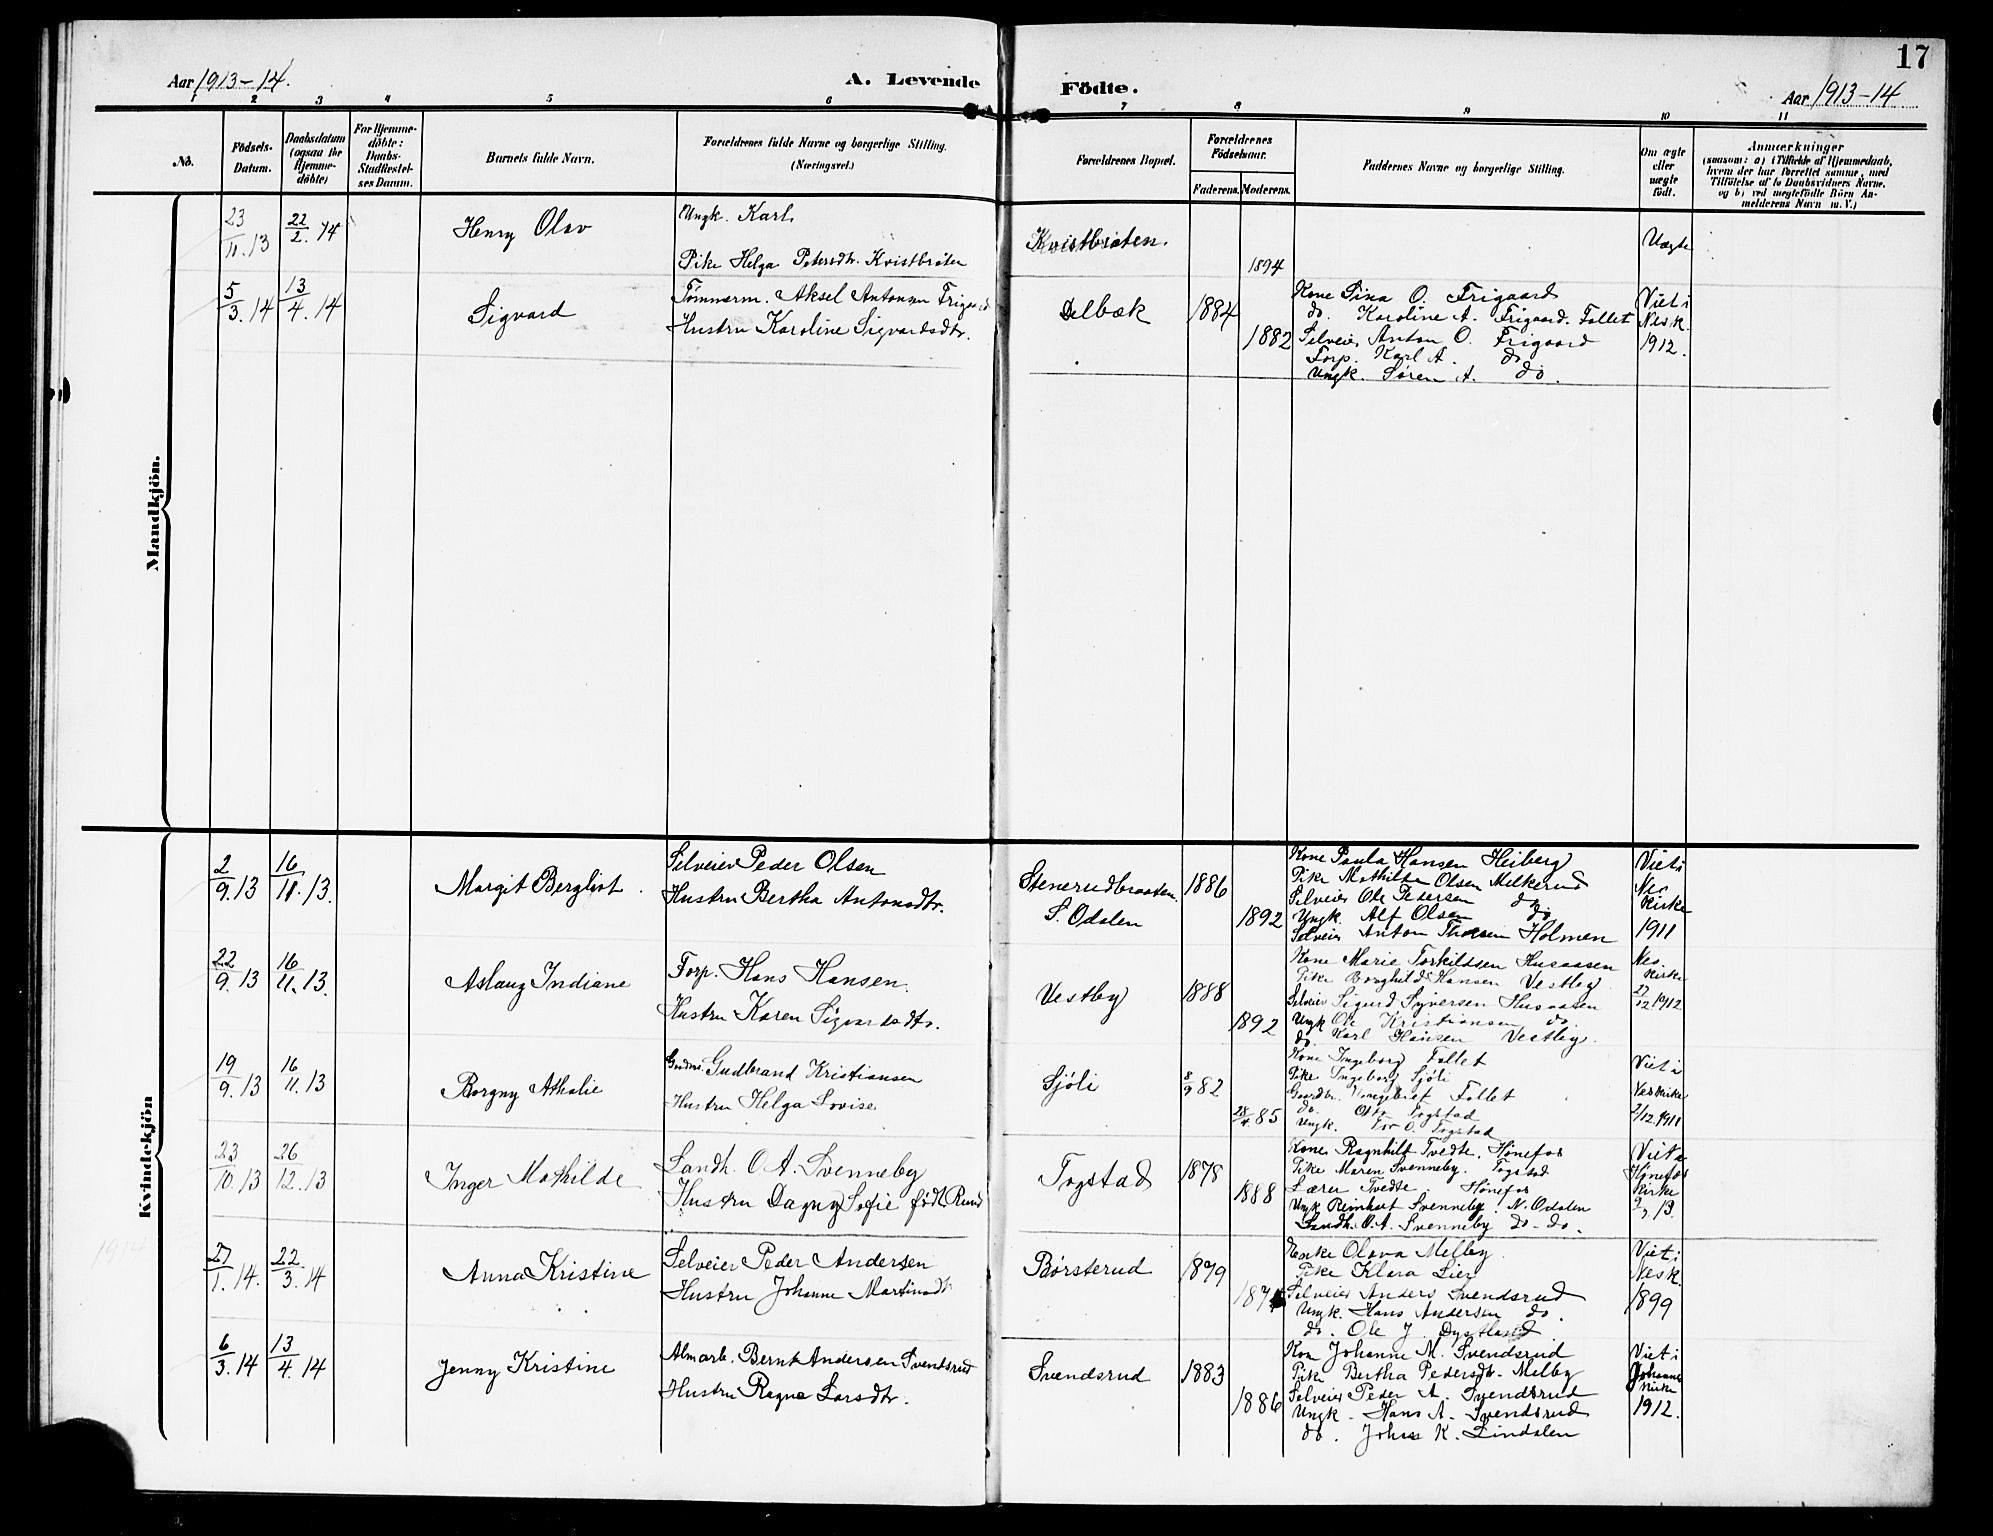 17
Aar 1913-14.
A. Levende Födte.
Aar 1913-14
1 2 3 4 5 6 7 8 9 10 11
No.
Födsels-Datum.
Daabsdatum (ogsaa for Hjemmedöbte)
For Hjemmedöbte: Daabs-Stadfæstelses Datum.
Barnets fulde Navn.
Forældrenes fulde Navne og borgerlige Stilling. (Næringsvei.)
Forældrenes Bopæl.
Forældrenes Födselsaar.
Faderens. Moderens.
Faddernes Navne og borgerlige Stilling.
Om ægte eller uægte født.
Anmærkninger
(saasom: a) i Tilfælde af Hjemmedaab, hvem der har forrettet samme, med Tilföielse af to Daabsvidners Navne, og b) ved uegtefödte Börn Anmelderens Navn m. V.)
Mandkjön.
23/11.13 22/2.14 Henry Olav
Ungk. Karl
Pike Helga Petersdtr. Kvistbråten
Kvistbråten. 1894 Uægte
5/3.14 13/4.14 Sigvard
Tömmerm. Aksel Antonsen Frigaard
Hustru Karoline Sigvardsdtr.
Delbæk 1884 1882
Kone Pina O. Frigaard
do. Karoline A. Frigaard. Fallet
Selveier Anton O. Frigaard
Forp. Karl A. do
Ungk. Søren A. do.
Viet i Nesk. 1912.
Kvindekjön
2/9.13 16/11.13. Margit Bergliot.
Selveier Peder Olsen
Hustru Bertha Antonsdtr.
Stenerudbraaten S. Odalen 1886 1892
Kone Paula Hansen Heiberg
Pike Mathilde Olsen Melkerud
Selveier Ole Petersen do
Ungk. Alf Olsen do
Selveier Anton Holmen
Viet i Nes Kirke 1911
22/9.13 16/11.13. Aslaug Indiane
Forp. Hans Hansen.
Hustru Karen Sigvardsdtr.
Vestby 1888 1892
Kone Marie Torkildsen Husaasen
Pike Borghild Hansen Vestby
Selveier Sigurd Syversen Husaasen
Ungk Ole Kristiansen do
do. Karl Hansen Vestby.
Nes. Kirke 27/12.1912
19/9.13 16/11.13 Borgny Athalie
Gudbrand Kristiansen
Hustru Helga Lovise
Sjöli 8/9 82 28/4.85
Kone Ingeborg Fallet
Pike Ingeborg Sjöli
Gaardbr. Fallet
do. Ole Togstad
Ungk. Tor O. Togstad
Viet i Neskirke 2/12.1911
23/10.13 26/12.13 Inger Mathilde
Landh. O A. Svenneby
Hustru Dagny Sofie født Rund
Togstad 1878 1888
Kone Ragnhilt Tvedte, Hønefos
Pike Maren Svenneby. Togstad
Lærer Tvedte. Hønefos
Ungk Reinhart Svenneby. N. Odalen
Landh. O. A. Svenneby do - do.
Viet i Hønefos Kirke 2/7.13.
1914
27/1.14. 22/3.14 Anna Kristine
Selveier Peder Andersen
Hustru Johanne Martinsdtr
Børsterud 1879
Enke Olava Melby.
Pike Klara Lier
Selveier Anders Svendsrud
Ungk. Hans Andersen do.
do. Ole J. Dystland
Viet i Nesk. 1899
6/3.14 13/4.14 Jenny Kristine
Almarb. Bernt Andersen Svendsrud
Hustru Ragna Larsdtr.
Svendsrud 1883 1886
Kon Johanne M. Svendsrud
Pike Bertha Pedersdtr. Melby
Selveier Peder A. Svendsrud
Ungk. Hans A. Svendsrud
do. Johan K. Lindalen
Viet i Johannes Kirke 1912.